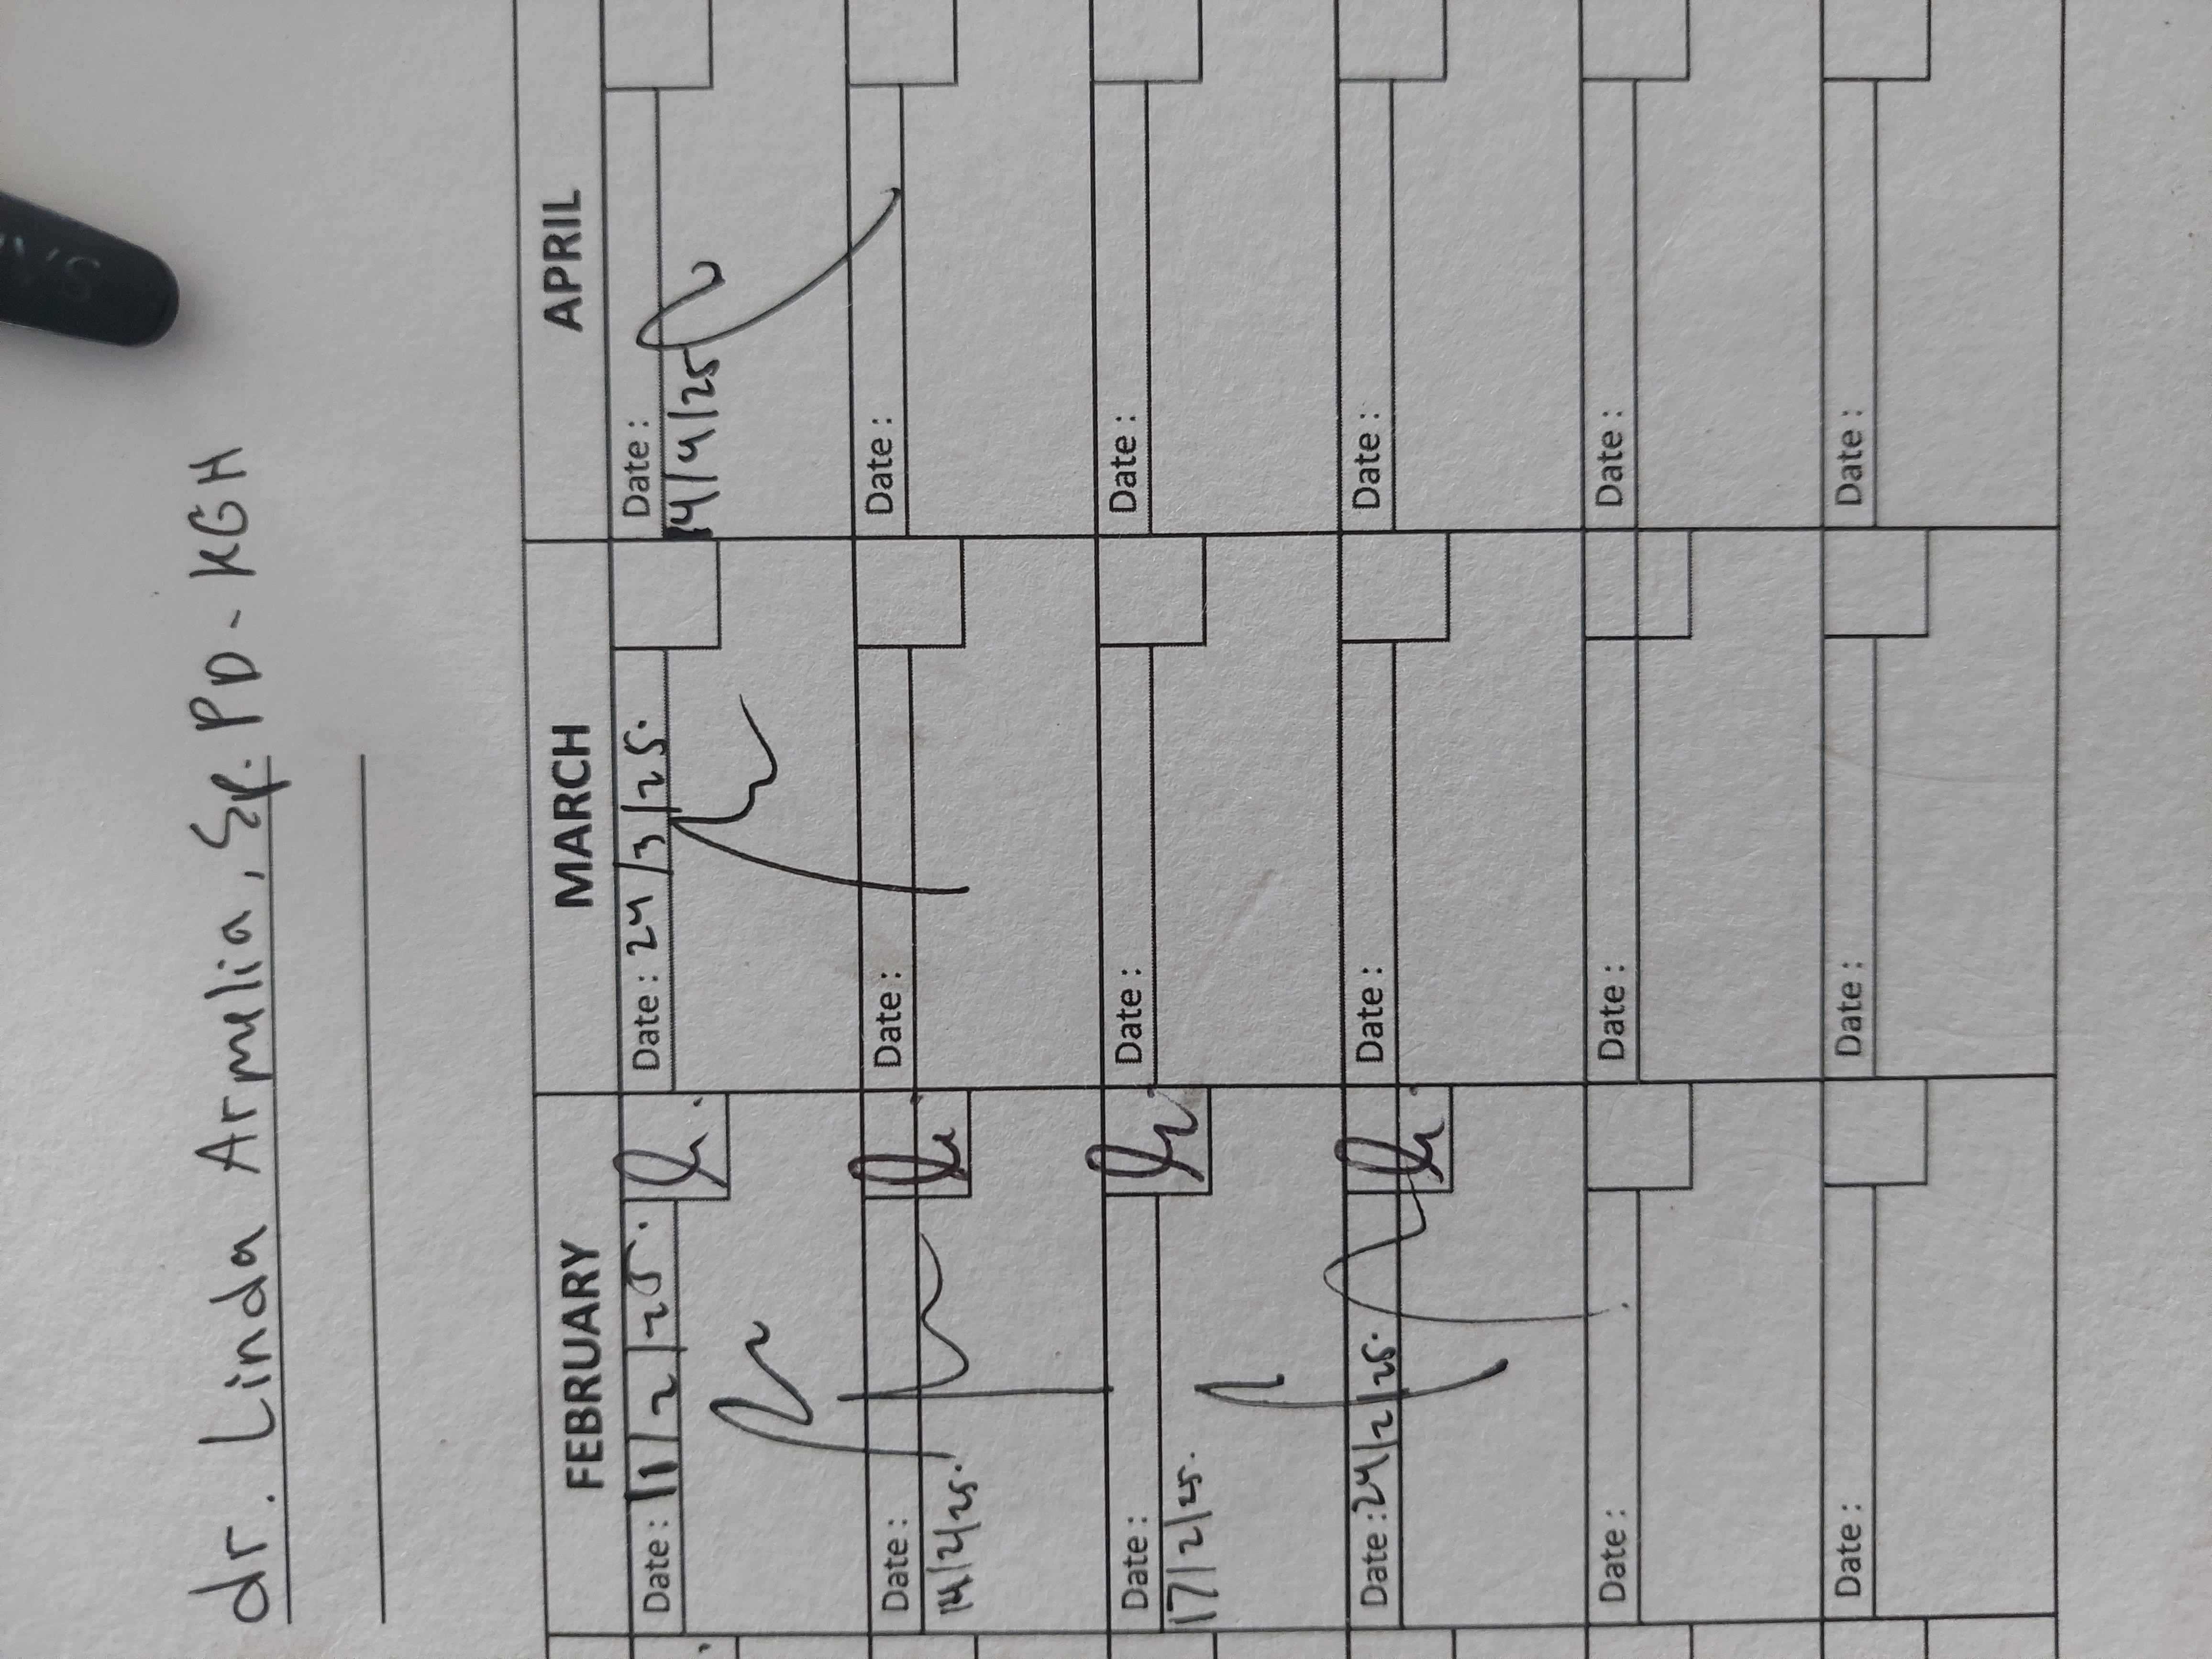 dr. Linda Armelia, Sp. PD - KGH
FEBRUARY MARCH APRIL
Date : 11/2/25. Date : 24/3/25. Date :
14/4/25
Date : Date : Date :
14/2/25.
Date : Date : Date :
17/2/25.
Date : 24/2/25. Date : Date :
Date : Date : Date :
Date : Date : Date :